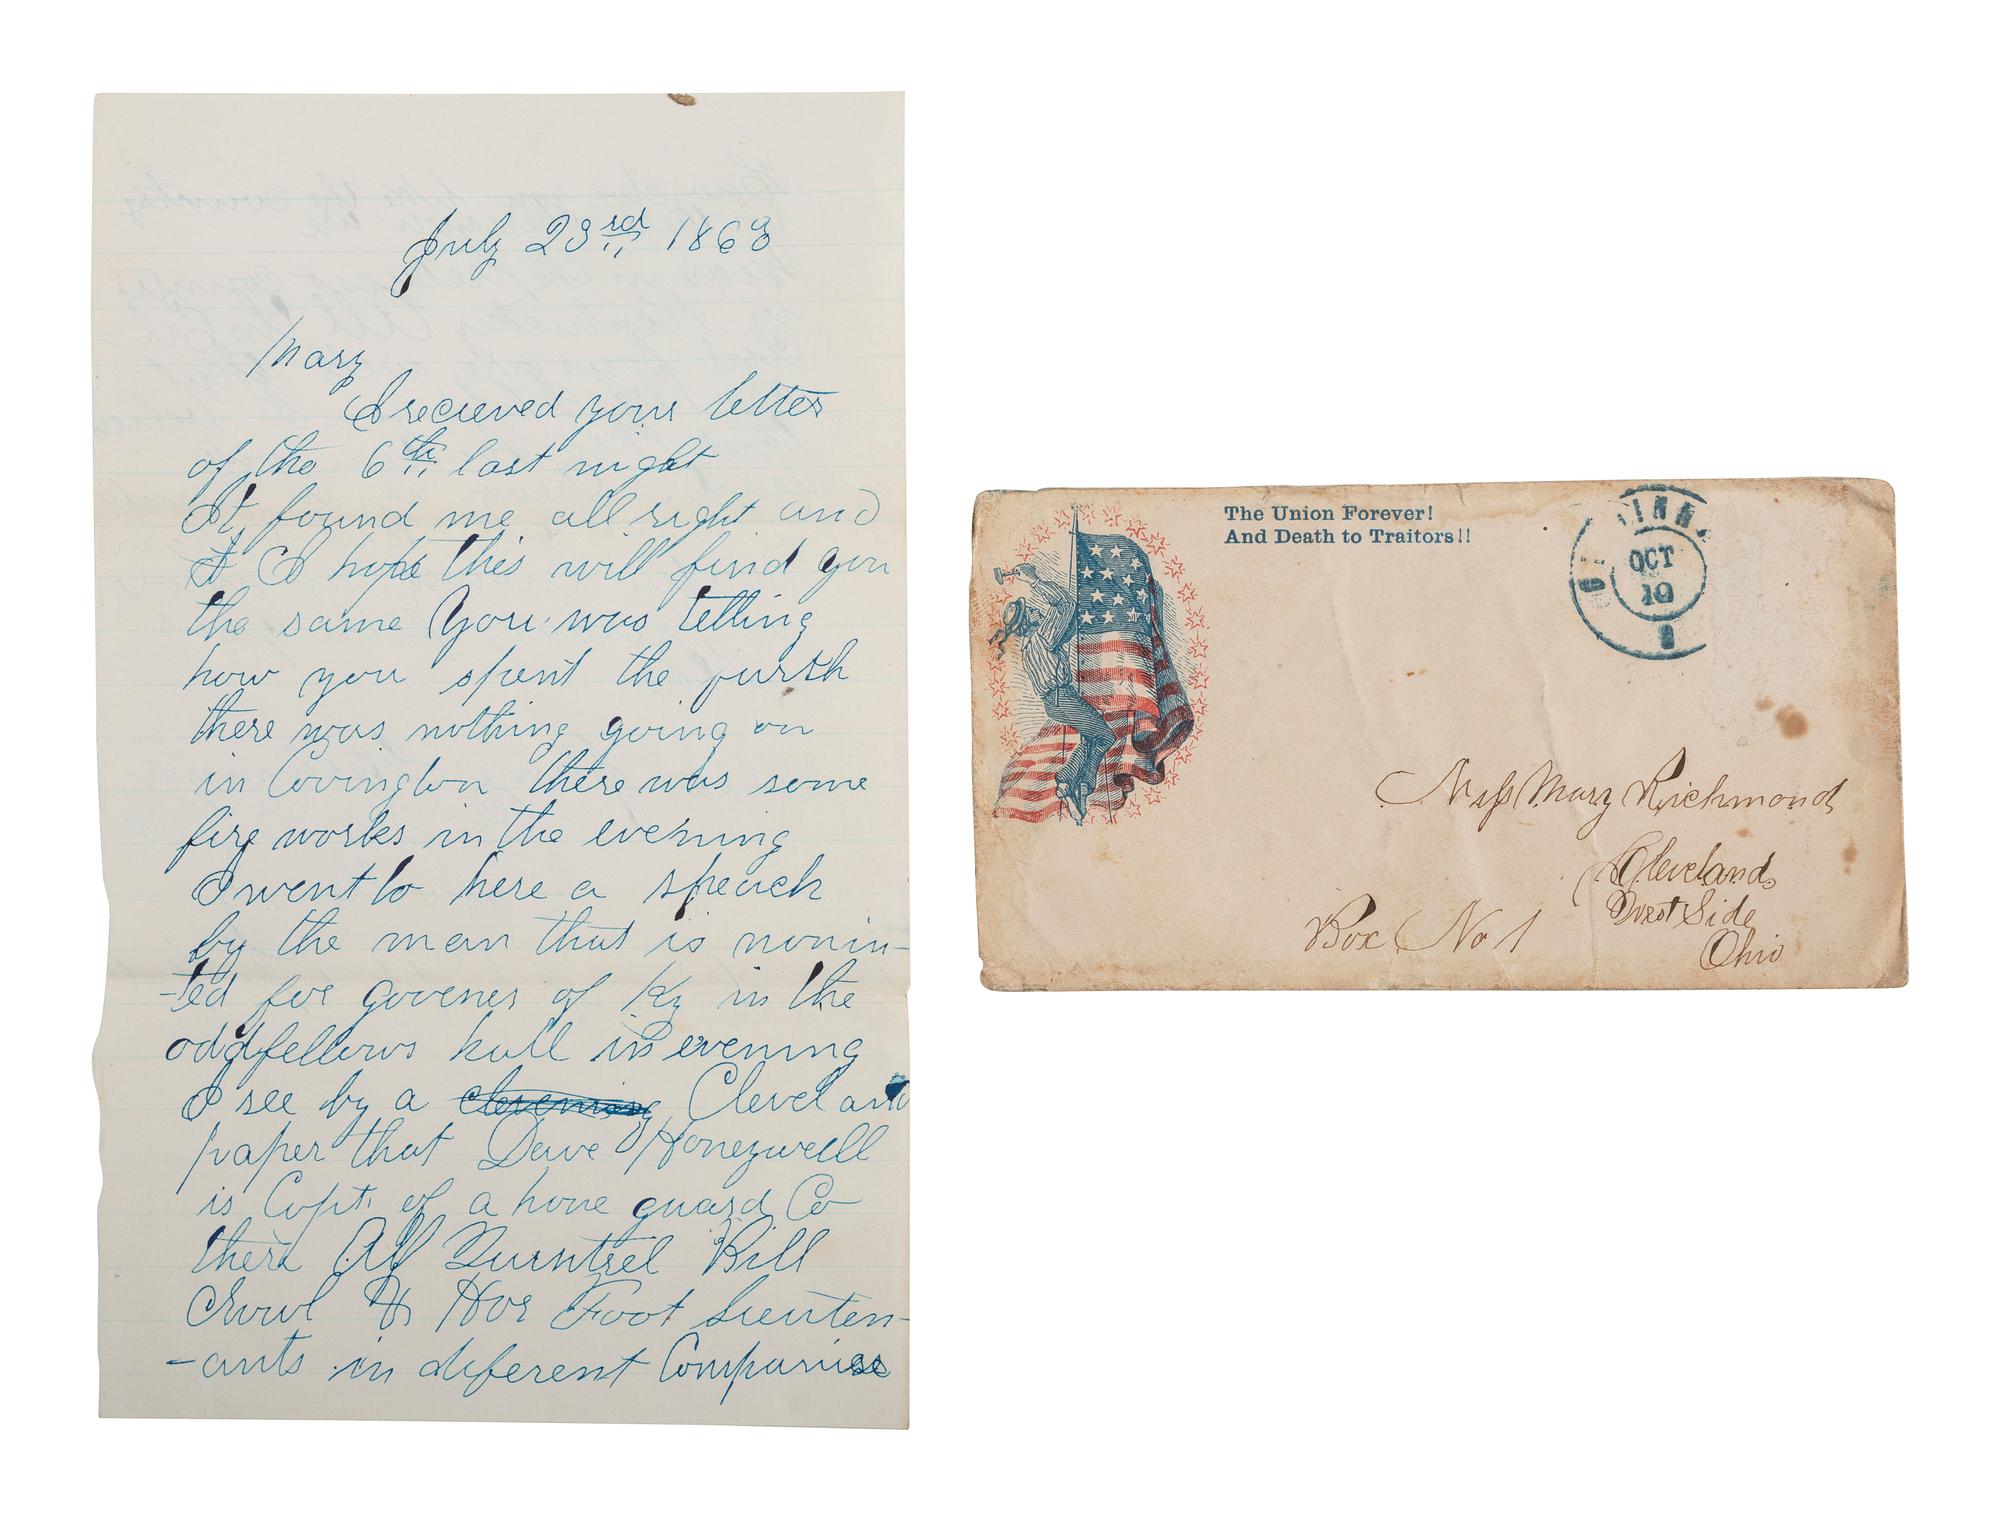 July 23rd 1863
Mary
I recieved your letter
of the 6th last night
It found me all right and
I hope this will find you
the same You was telling
how you spent the furth
there was nothing going on
in Covington there was some
fire works in the evening
I went to here a speach
by the man that is nonin-
-ted for govener of Ky in the
oddfellows hall in evening
I see by a Cleveland
paper that Dave Honeywell
is Capt. of a home guard Co
there Alf Bill
& Hor Foot lieuten-
-ants in diferent Companies
The Union Forever!
And Death to Traitors!!
OCT
10
Miss Mary Richmond
Cleveland
West Side
Ohio
Box No 1